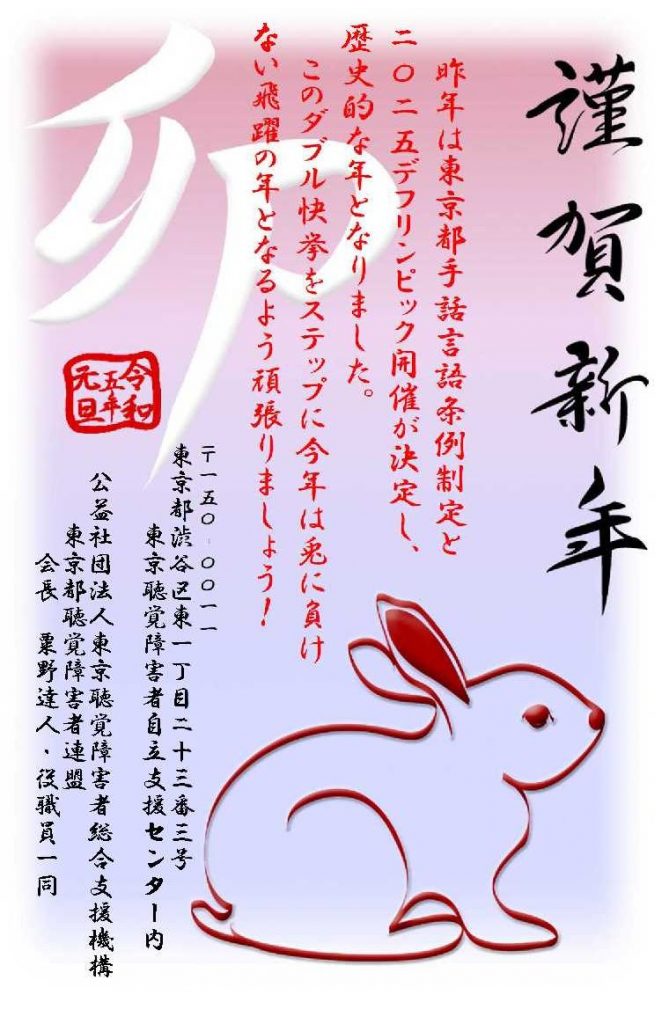 謹賀新年
昨年は東京都手話言語条例制定と
二〇二五デフリンピック開催が決定し、
歴史的な年となりました。
このダブル快挙をステップに今年は兎に負け
ない飛躍の年となるよう頑張りましょう!
卯
令和
五年
元旦
〒一五〇-〇〇一一
東京都渋谷区東一丁目二十三番三号
東京聴覚障害者自立支援センター内
公益社団法人東京聴覚障害者総合支援機構
東京都聴覚障害者連盟
会長 粟野達人・役職員一同